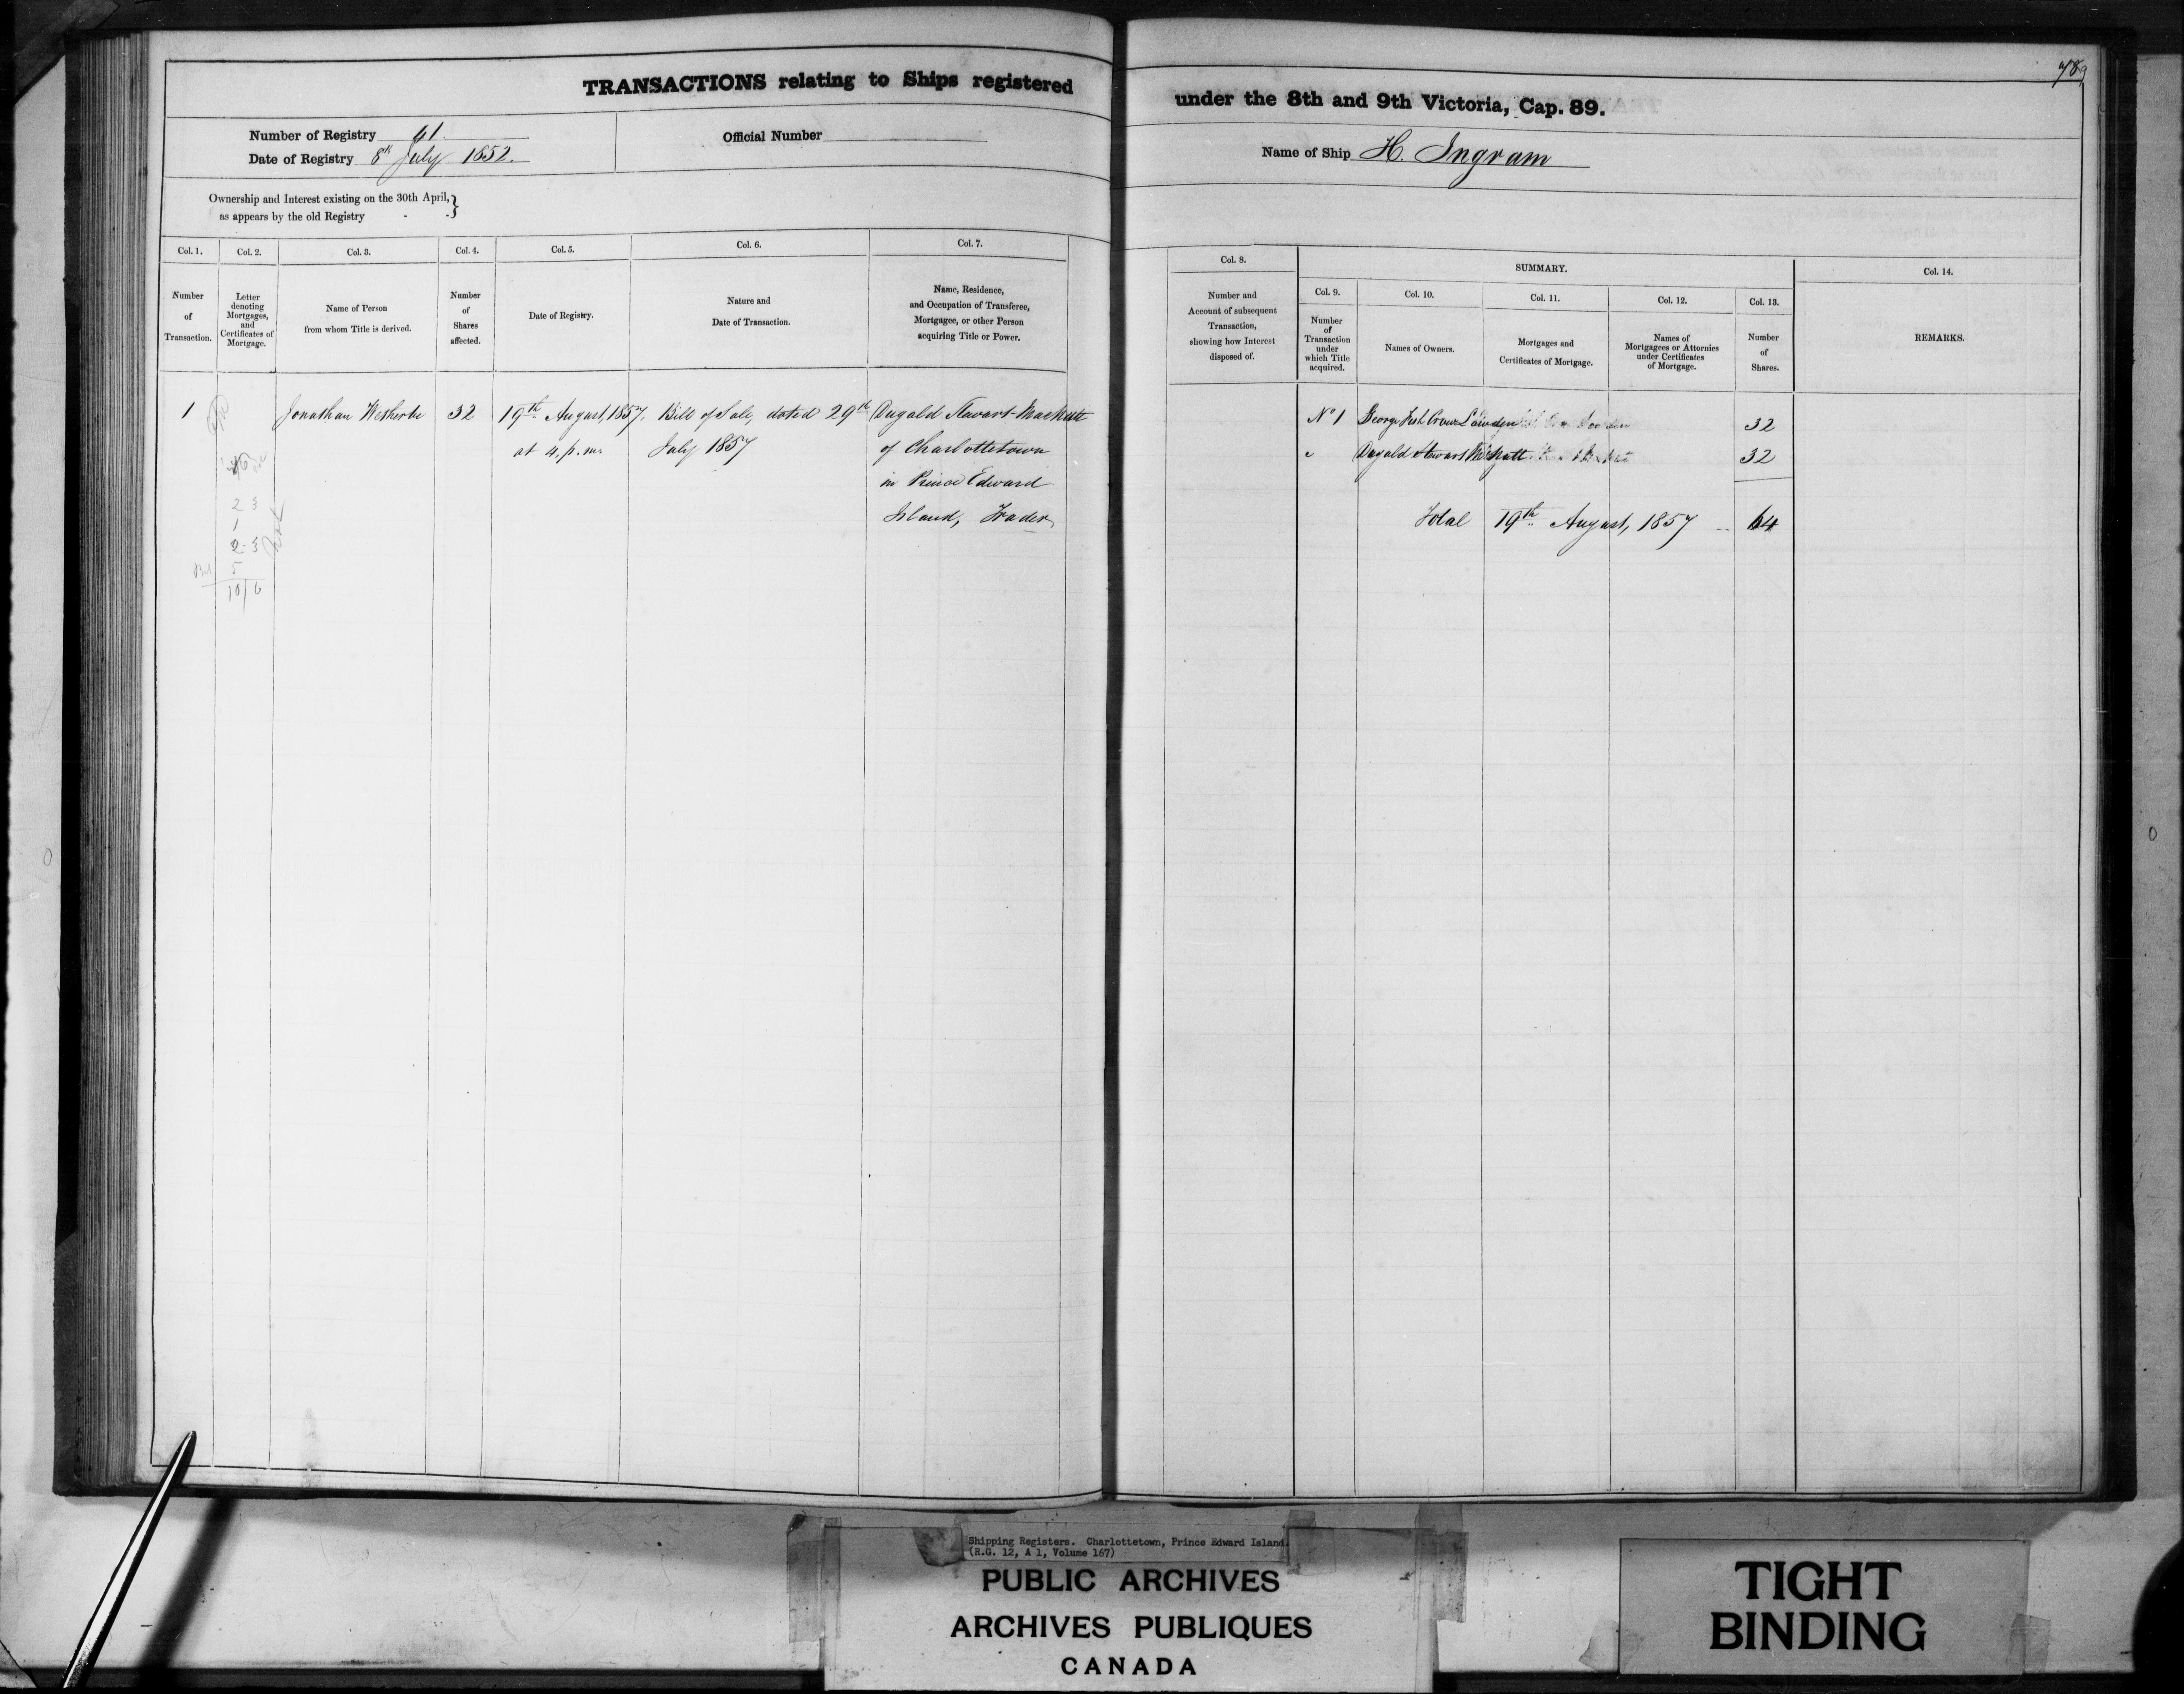 TRANSACTIONS relating to Ships registered
Number of Registry 61.
Official Number
Date of Registry 8th July 1852.
Ownership and Interest existing on the 30th April,
as appears by the old Registry - - }
Col. 1. Col. 2. Col. 3. Col. 4. Col. 5. Col. 6. Col. 7.
Number
of
Transaction.
Letter
denoting
Mortgages,
and
Certificates of
Mortgage.
Name of Person
from whom Title is derived.
Number
of
Shares
affected.
Date of Registry.
Nature and
Date of Transaction.
Name, Residence,
and Occupation of Transferee,
Mortgagee, or other Person
acquiring Title or Power.
1 Jonathan Wetherbe 32 19th August, 1857, Bill of Sale, dated 29th Dugald Stewart
at 4. p.m. July 1857 of Charlottetown
in Prince Edward
Island, Trader
2 3
1
2-3
5
10/6
789
under the 8th and 9th Victoria, Cap. 89.
Name of Ship H. Ingram
Col. 8.
Number and
Account of subsequent
Transaction,
showing how Interest
disposed of.
SUMMARY.
Col. 9. Col. 10. Col. 11. Col. 12. Col. 13.
Number
of
Transaction
under
which Title
acquired.
Names of Owners.
Mortgages and
Certificates of Mortgage.
Names of
Mortgagees or Attornies
under Certificates
of Mortgage.
Number
of
Shares.
Col. 14.
REMARKS.
No 1 George 32
Dugald Stewart 32
Total 19th August, 1857 64
Shipping Registers. Charlottetown, Prince Edward Island.
(R.G. 12, A 1, Volume 167)
PUBLIC ARCHIVES
ARCHIVES PUBLIQUES
CANADA
TIGHT
BINDING